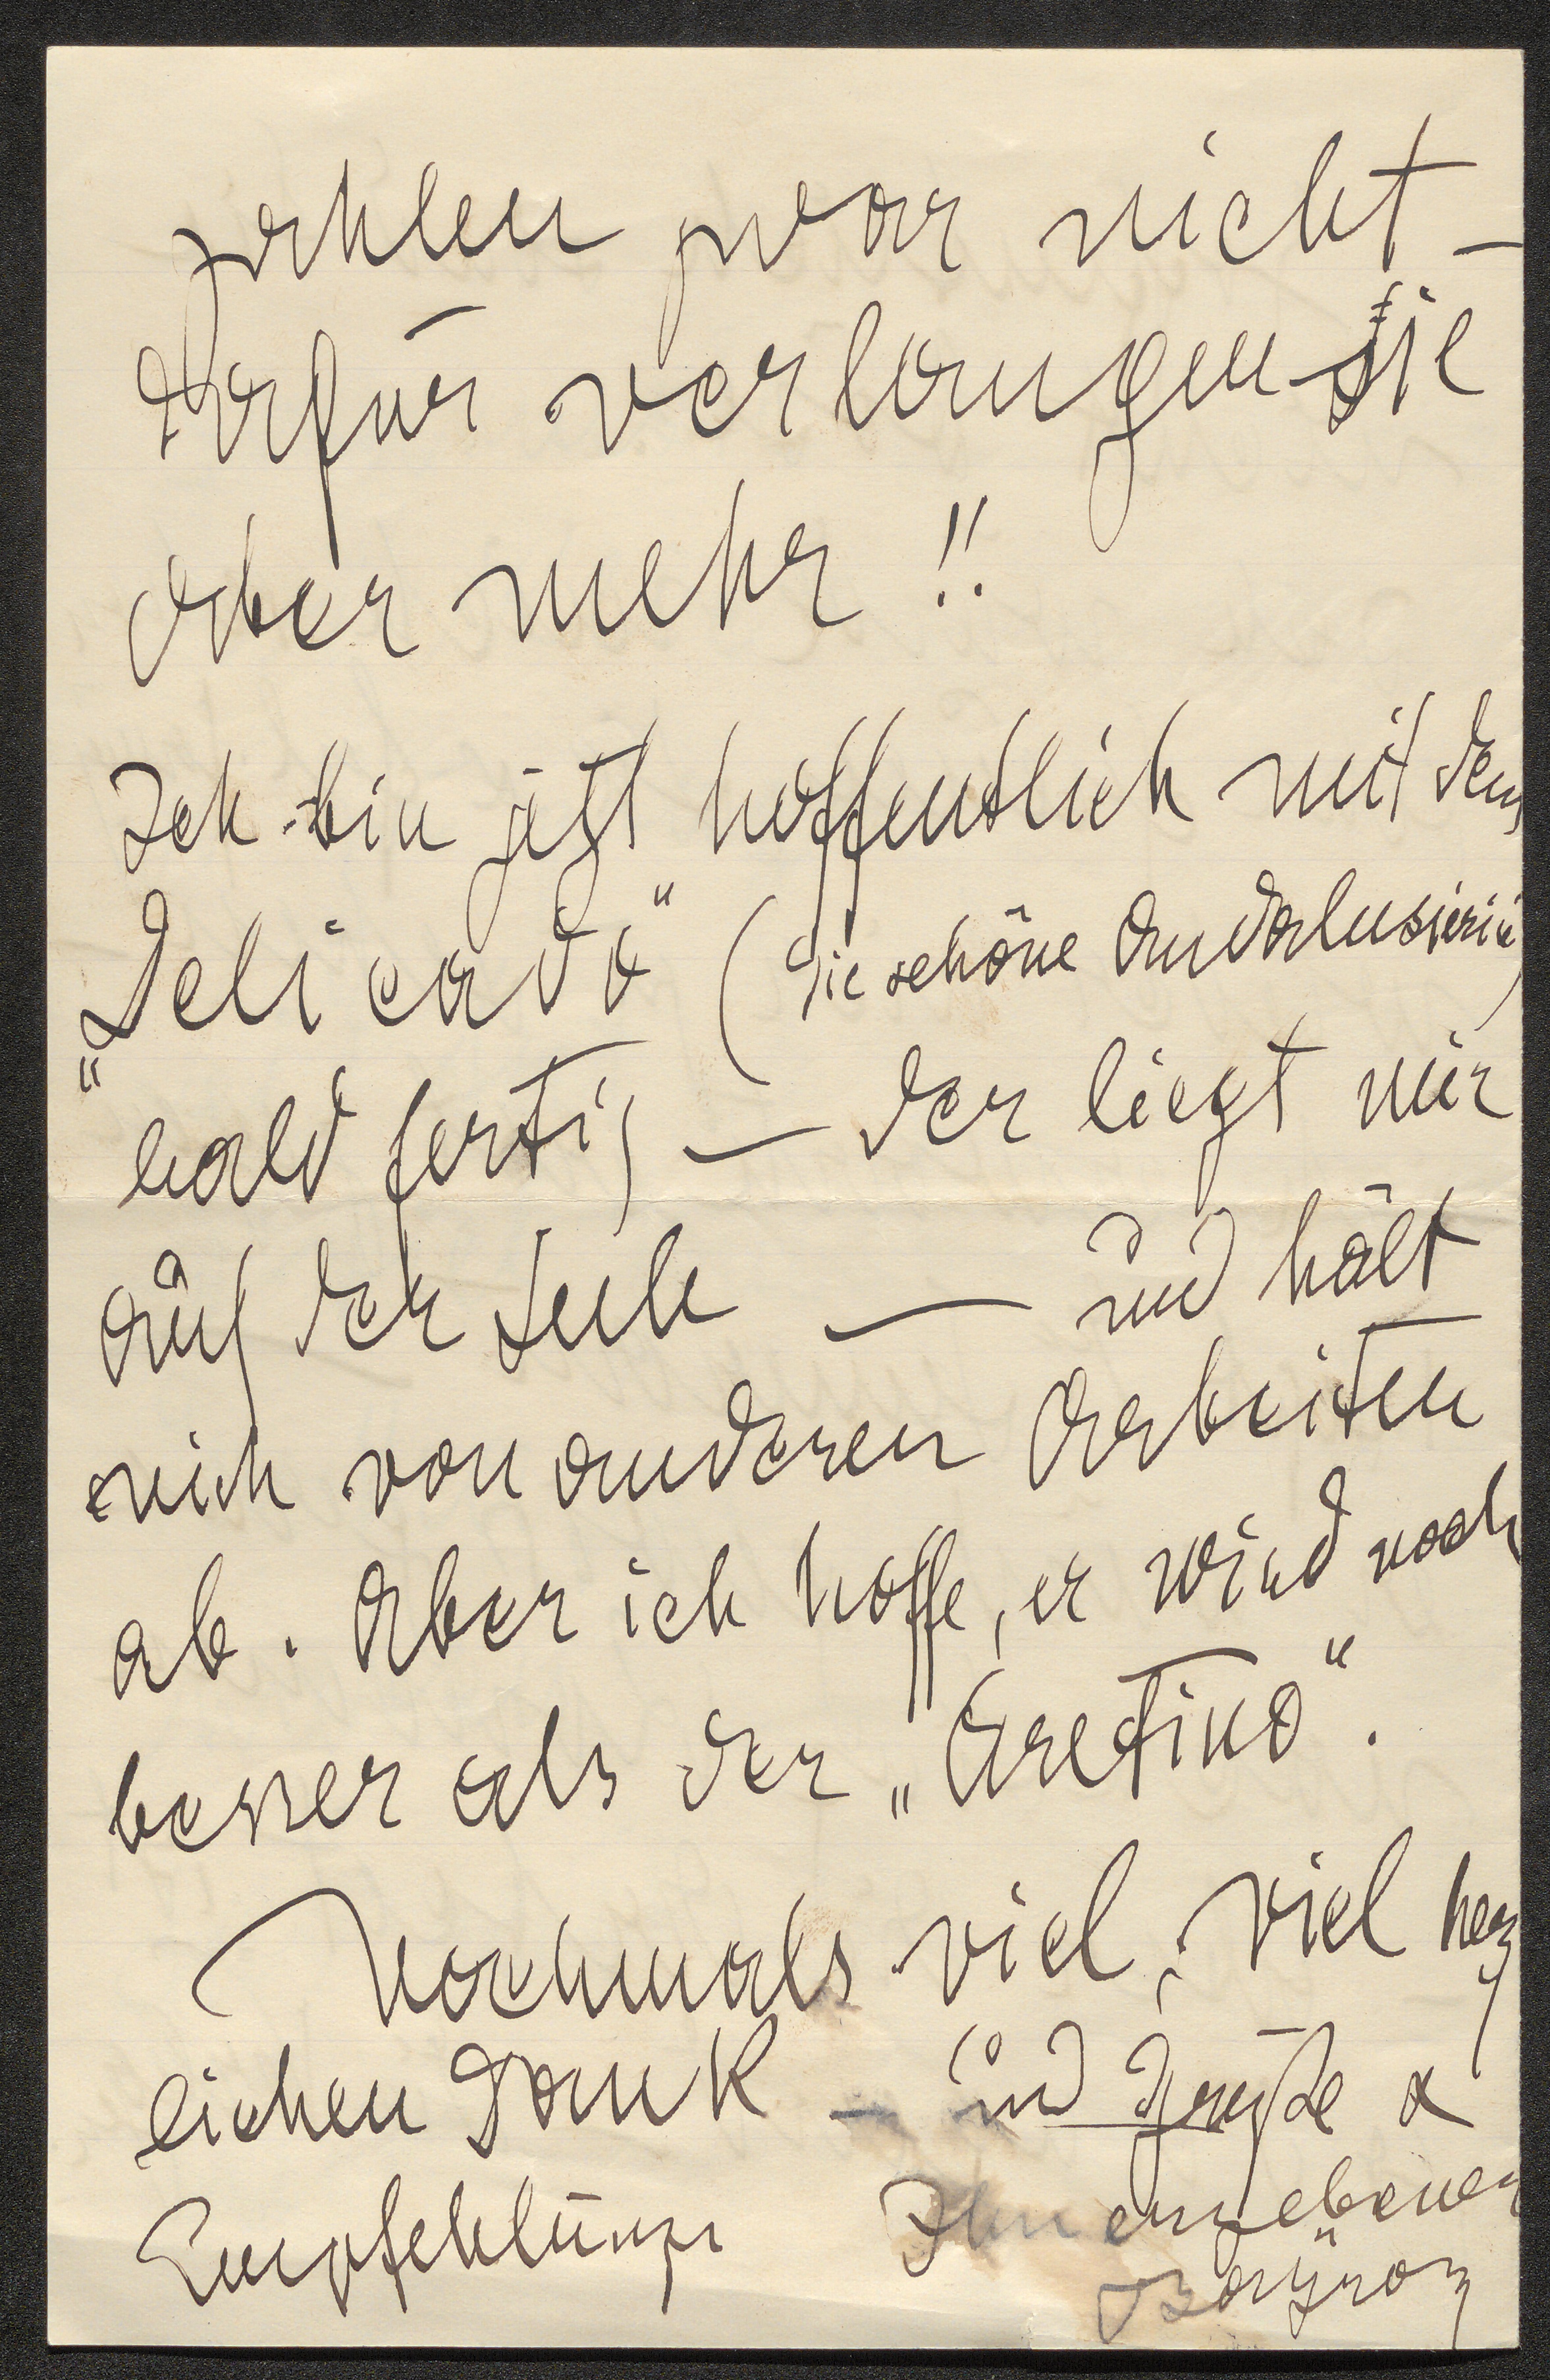 zahlen zwar nicht –
dafür verlangen sie
aber mehr!!
Ich bin jetzt hoffentlich mit dem
„Delicado“ (Die schöne Andalusierin)
bald fertig – der liegt mir
auf der Seele – und hält
mich von anderen Arbeiten
ab. Aber ich hoffe, er wird noch
besser als der „Aretino“.
Nochmals viel, viel herz
lichen Dank – und Grüße &
Empfehlungen
Ihr ergebener
Bayros